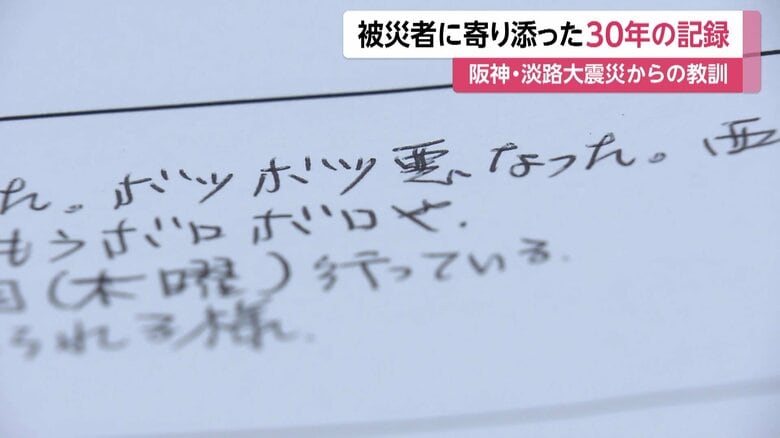 被災者に寄り添った30年の記録
阪神・淡路大震災からの教訓
た。ボツボツ悪なった。西
もうボロボロや.
(木曜)行っている.
られる様.